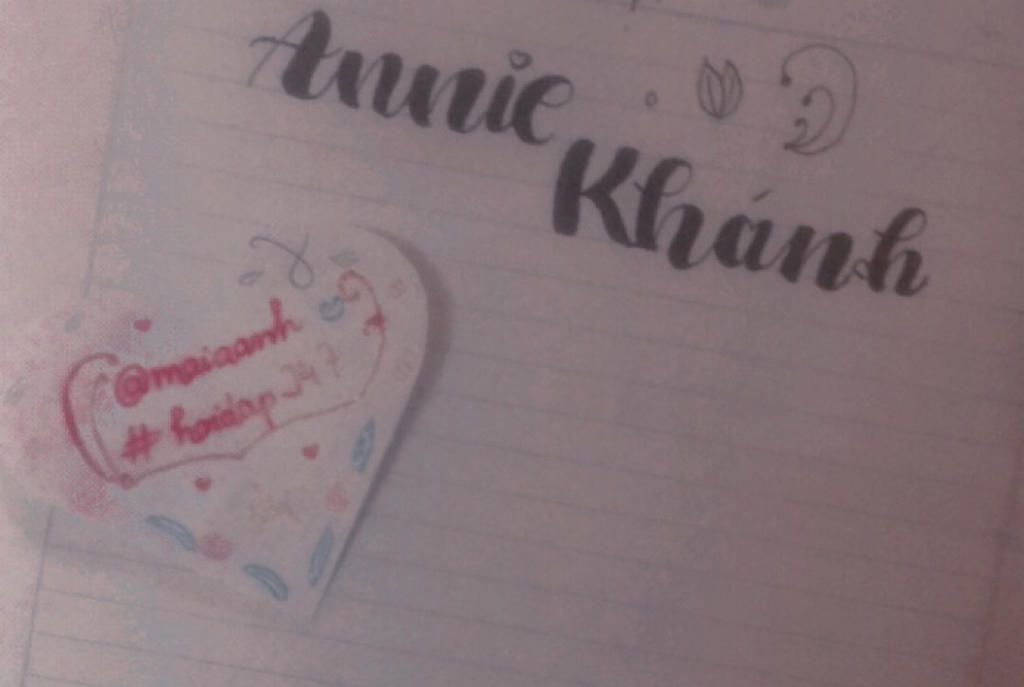 Annie
Khánh
@maiaanh
#hoidap_247